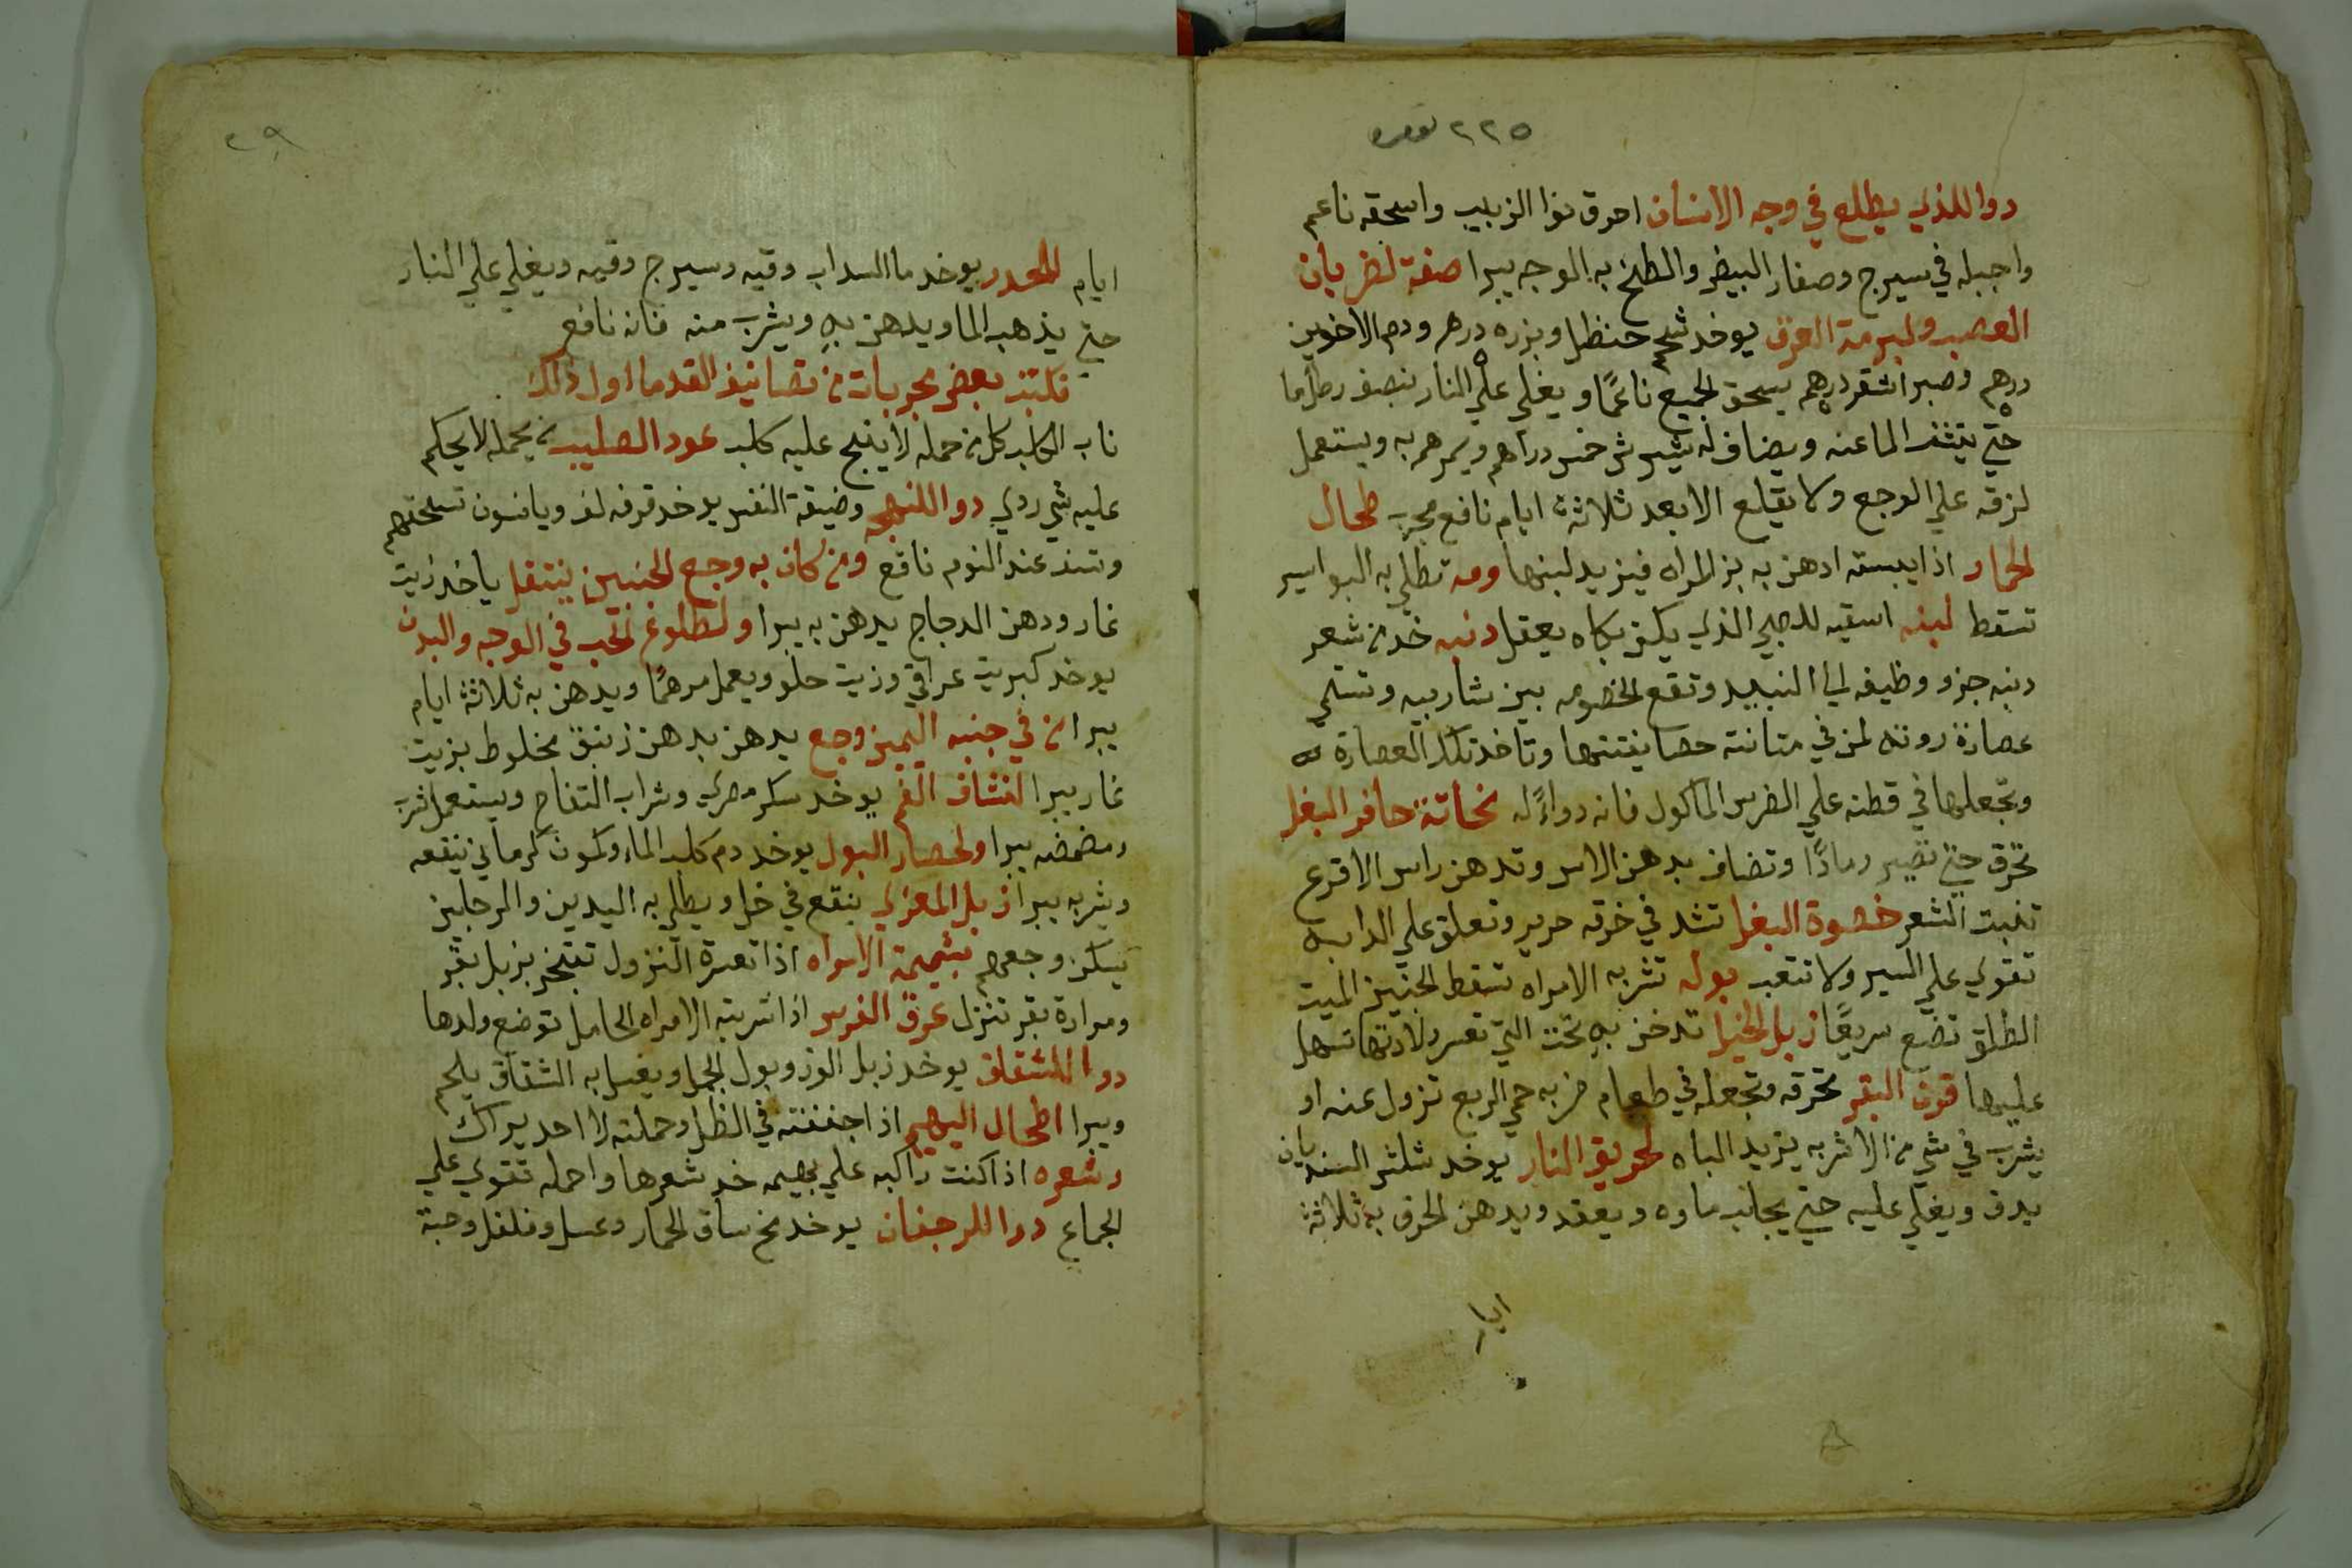 ٢٢٥ نمره
دوا للذي يطلع في وجه الانسان احرق نوا الزبيب واسحقه ناعم
واجبله في سيرج وصفار البيض والطخ به الوجه يبرا صفة لضربان
العصب ولبرمة العرق يوخد شحم حنظل وبزره درهم ودم الاخوين
درهم وصبر اشقر درهم يسحق الجميع ناعمًا ويغلي علي النار بنصف رطل ما
حتي ينشف الما عنه ويضاف له شيرش خمس دراهم ويمرهم به ويستعمل
لزقه علي الوجع ولا يقلع الا بعد ثلاثة ايام نافع مجرب طحال
الحمار اذا يبسته ادهن به بز المراه فيزيد لبنها ومه تطلي به البواسير
تسقط لبنه اسقيه للصبي الذي يكثر بكاه يعقل دنبه خد من شعر
دنبه جزو وظيفه الي النبيد وتقع الخصومه بين شاربيه وتسقي
عصارة روثه لمن في مثانته حصا يفتتها وتاخد تلك العصارة
وتجعلها في قطنه علي الضرس الماكول فانه دواءً له نحاتة حافر البغل
تحرق حتي تصير رمادًا وتضاف بدهن الاس وتدهن راس الاقرع
تنبت الشعر خصوة البغل تشد في خرقه حرير وتعلق علي الدابه
تقوي علي السير ولا تتعب بوله تشربه الامراه تسقط الجنين الميت
الطلق تضع سريعًا زبل الخيل تدخن به تحت التي تعسر ولادتها تسهل
عليها قرن البقر تحرقه وتجعله في طعام من به حمي الربع تزول عنه او
يشرب في شي من الاشربه يزيد الباه لحريق النار يوخد شلش السنديان
يدق ويغلي عليه حتي يجانب ماوه ويعقد ويدهن الحرق به ثلاثة
ايام
٢٩
ايام للمحدر يوخد ما السداب وقيه وسيرج وقيه ويغلي علي النار
حتي يذهب الما ويدهن به ويشرب منه فانه نافع
نكتب بعض مجربات من تصانيف القدما اول ذلك
ناب الكلب كل من حمله لا ينبح عليه كلب عود الصليب من يحمله لا يحكم
عليه شي ردي دوا للنهجه وضيقة النفس يوخد قرفه لف ويانسون تسحقهم
وتسف عند النوم نافع ومن كان به وجع الجنبين ينتقل ياخد زيت
غار ودهن الدجاج يدهن به يبرا ولطلوع الحب في الوجه والبدن
يوخد كبريت عراقي وزيت حلو ويعمل مرهمًا ويدهن به ثلاثة ايام
يبرا من في جنبه اليمين وجع يدهن بدهن زنبق مخلوط بزيت
غار يبرا لنشاف الفم يوخد سكر مصري وشراب التفاح ويستعمل شرب
ومضمضه يبرا ولحصار البول يوخد دم كلب الماء وكمون كرماني ينقعه
ويشربه يبرا زبل المعزي ينقع في خل ويطلي به اليدين والرجلين
يسكن وجعهم بشيمة الامراه اذا تعسرة النزول تتبخر بزبل بقر
ومرارة بقر تنزل عرق الفرس اذا شربته الامراه الحامل توضع ولدها
دوا للشقاق يوخد زبل الوز وبول الجمل ويغسل به الشقاق يلحم
ويبرا اطحال البهيم اذا جففته في الظل وحملته لا احد يراك
وشعره اذا كنت راكبه علي بهيمه خد شعرها واحمله تقوي علي
الجماع دوا للرجفان يوخد مخ ساق الحمار وعسل وفلفل وحبة